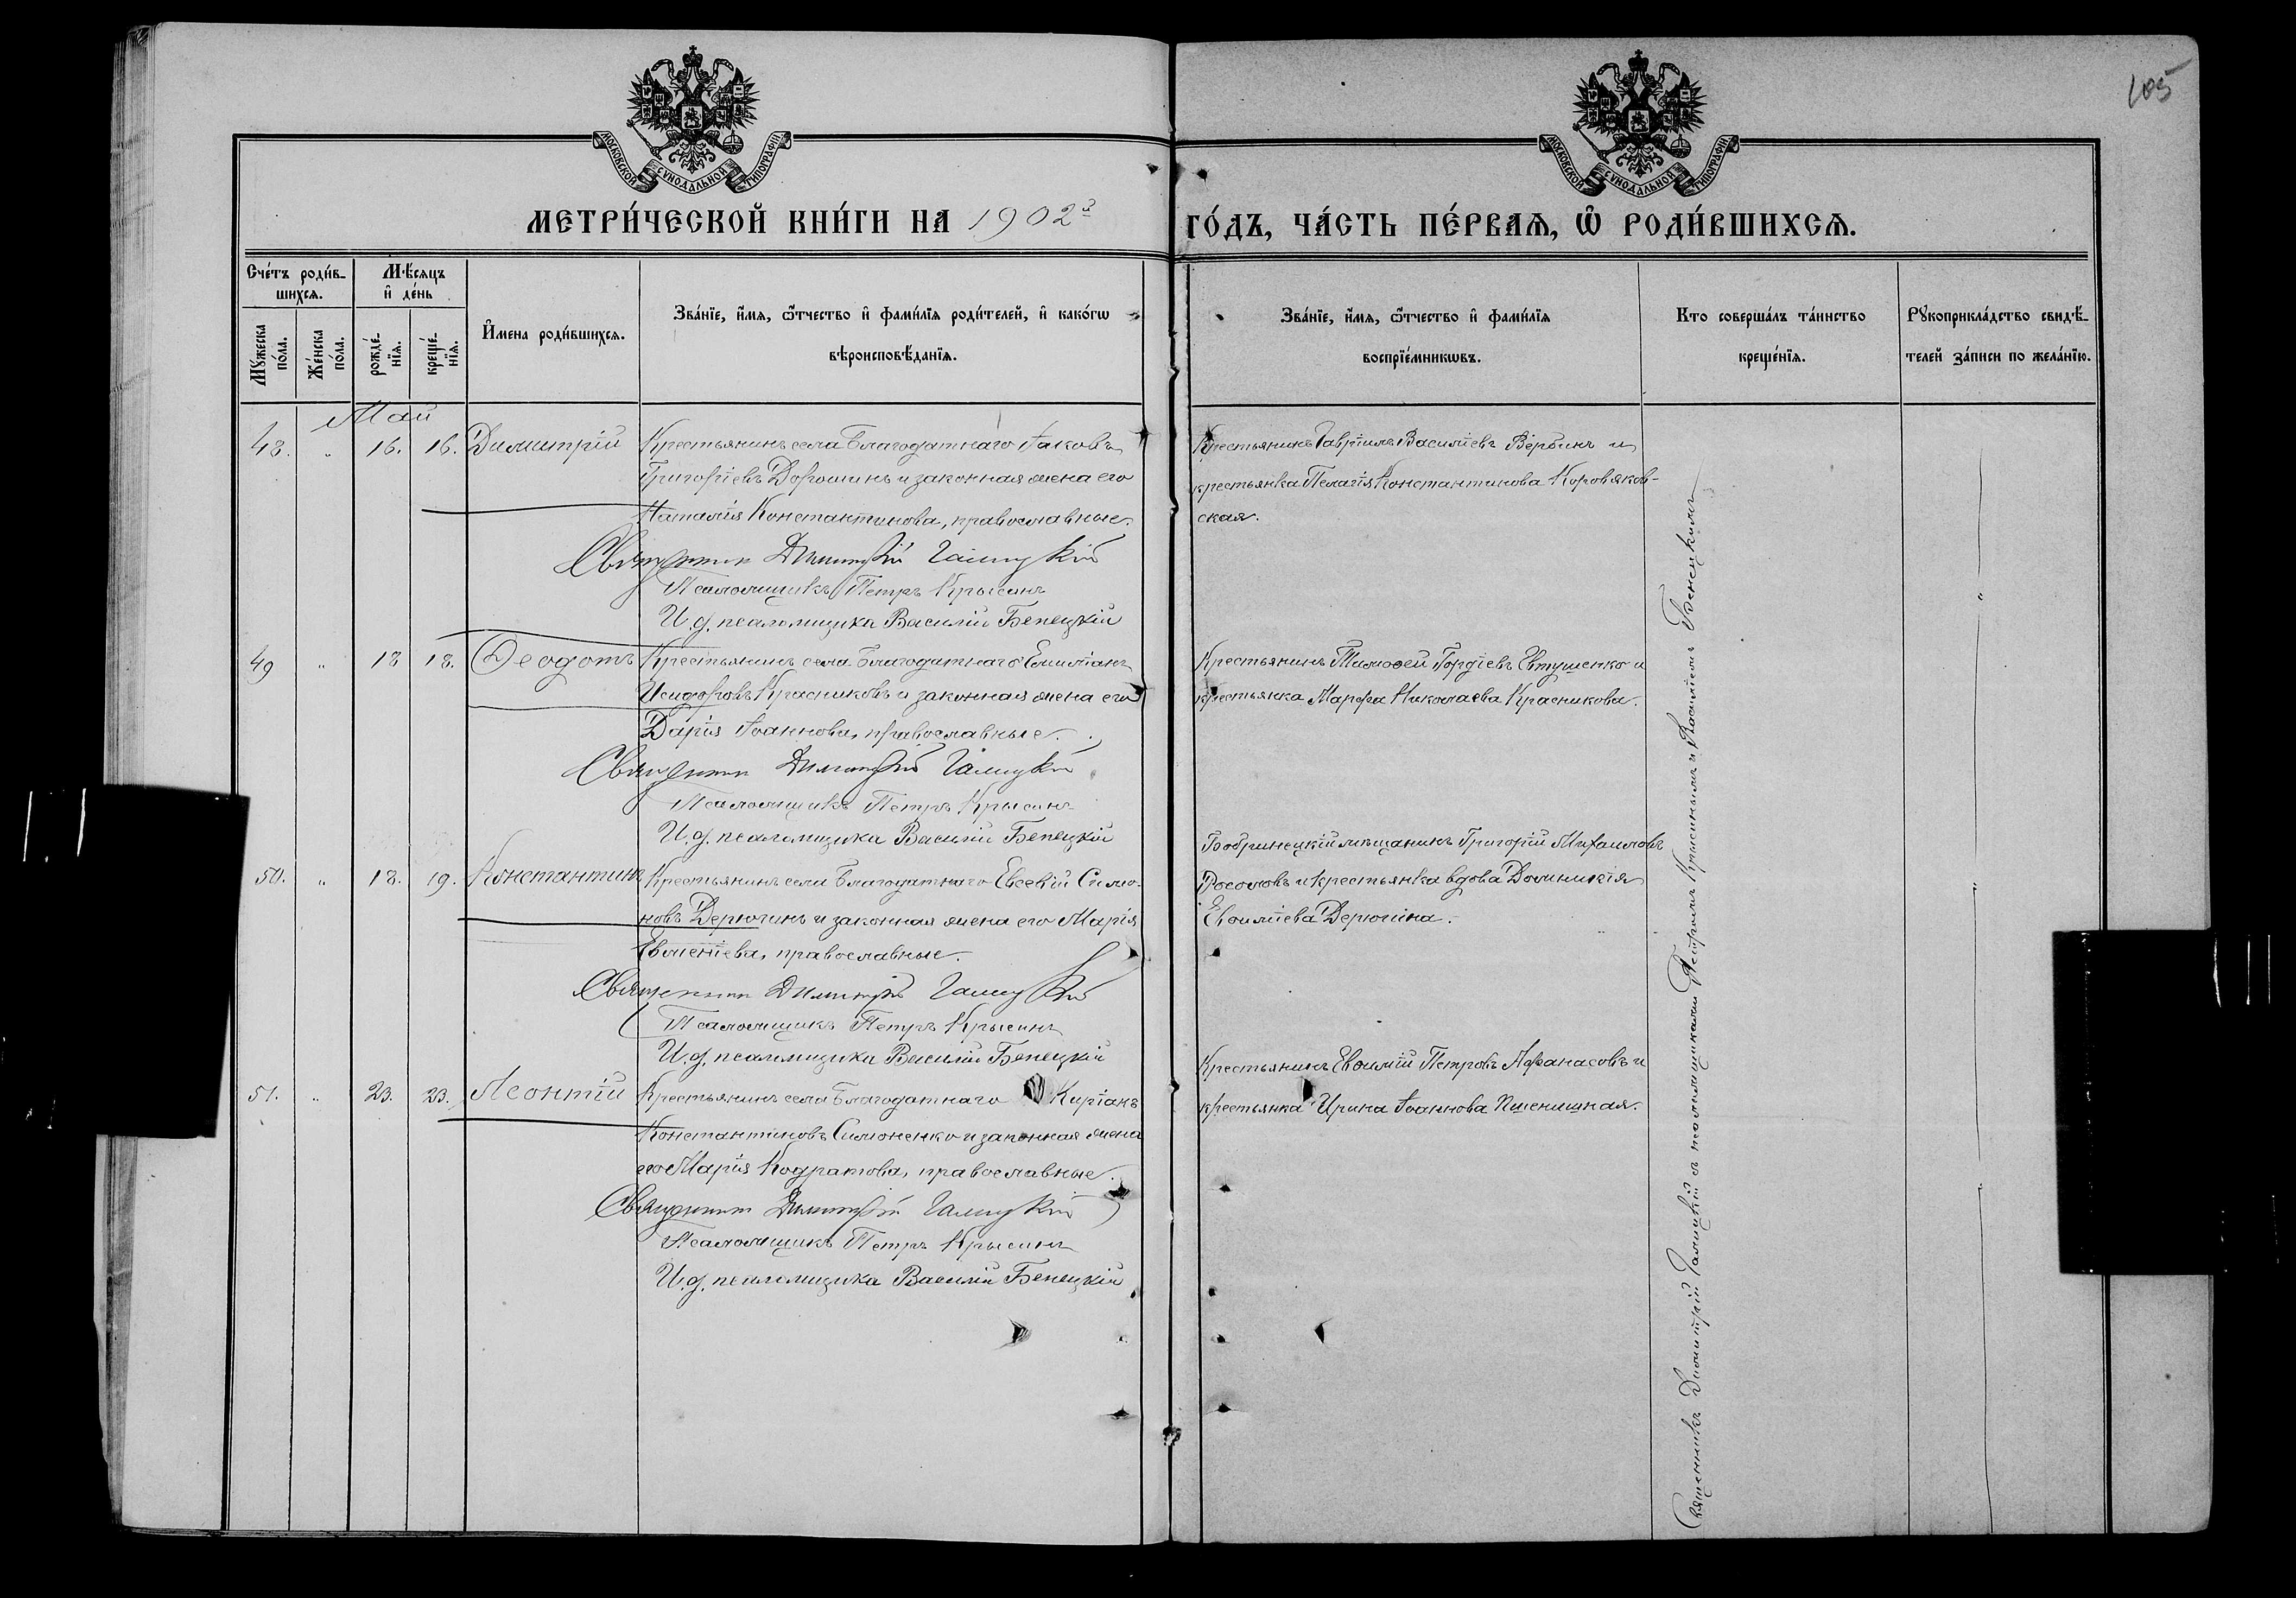 105
МОСКОВСКОЙ СУНОДАЛЬНОЙ ТИПОГРАФІИ
МОСКОВСКОЙ СУНОДАЛЬНОЙ ТИПОГРАФІИ
МЕТРИ́ЧЕСКОЙ КНИ́ГИ НА 1902 г
ГО́ДЪ, ЧА́СТЬ ПЕ́РВАѦ, Ѡ҆ РОДИ́ВШИХСѦ.
Сче́тъ роди́в-
шихсѧ.
Мꙋ́жеска
по́ла.
Же́нска
по́ла.
Мѣ́сѧцъ
и҆ де́нь
рожде́-
нїѧ.
креще́-
нїѧ.
И҆мена роди́вшихсѧ.
Зва́нїе, и҆́мѧ, ѻ҆́тчество и҆ фами́лїѧ роди́телей, и҆ како́гѡ
вѣроисповѣ́данїѧ.
Зва́нїе, и҆́мѧ, ѻ҆́тчество и҆ фами́лїѧ
воспрїе́мникѡвъ.
Кто соверша́лъ та́инство
креще́нїѧ.
Рꙋкоприкла́дство свидѣ́-
телей за́писи по жела́нїю.
Май
48. " 16. 16. Димитрій
Крестьянинъ села Благодатнаго Іаковъ
Григоріевъ Дорошинъ и законная жена его
Наталія Константинова, православные.
Священник Димитрій Галицкій
Псаломщикъ Петръ Крысинъ
И. д. псаломщика Василій Бенецкій
Крестьянинъ Гавріилъ Василіевъ Вербинъ и
крестьянка Пелагія Константинова Коровяков-
ская.
49 " 18 18. Ѳеодотъ
Крестьянинъ села Благодатнаго Емиліанъ
Исидоровъ Красниковъ и законная жена его
Дарія Іоаннова, православные.
Священник Димитрій Галицкій
Псаломщикъ Петръ Крысинъ
И. д. псаломщика Василій Бенецкій
Крестьянинъ Тимоѳей Гордіевъ Евтушенко и
крестьянка Марфа Николаева Красникова.
50. " 18. 19. Константинъ
Крестьянинъ села Благодатнаго Евсевій Симо-
новъ Дерюгинъ и законная жена его Марія
Евменіева, православные.
Священник Димитрій Галицкій
Псаломщикъ Петръ Крысинъ
И. д. псаломщика Василій Бенецкій
Бобринецкій мѣщанинъ Григорій Михаиловъ
Росоловъ и крестьянка вдова Домникія
Евѳиміева Дерюгина.
51. " 23. 23. Леонтій
Крестьянинъ села Благодатнаго Киріакъ
Константиновъ Симоненко и законная жена
его Марія Кодратова, православные.
Священник Димитрій Галицкій
Псаломщикъ Петръ Крысинъ
И. д. псаломщика Василій Бенецкій
Крестьянинъ Евѳимій Петровъ Аѳанасовъ и
крестьянка Ирина Іоаннова Пшенишная.
Священникъ Димитрій Галицкій съ псаломщиками Петромъ Крысинымъ и Василіемъ Бенецкимъ